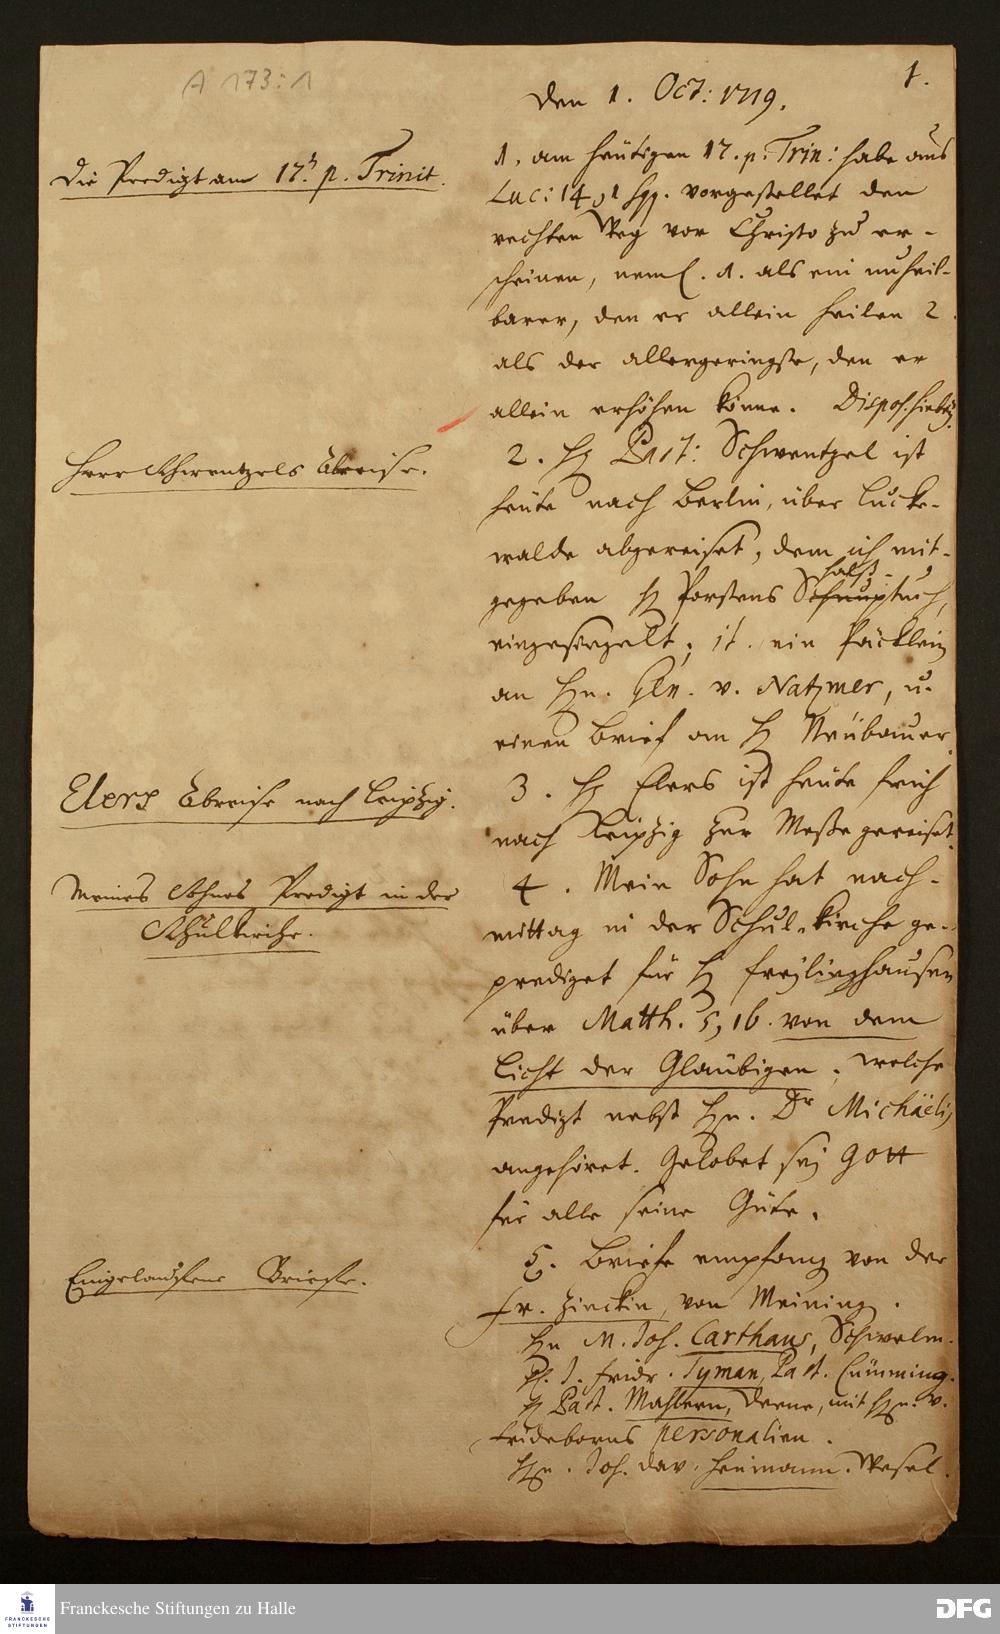 A 173:1
1.
Den 1. Oct: 1719.
Die Predigt am 17. p. Trinit.
1. am heütigen 17. p. Trin: habe aus
Luc: 14, 1 sqq. vorgestellet den
rechten Weg vor Christo zu er-
scheinen, neml. 1. als ein unheil-
barer, den er allein heilen 2.
als der allergeringste, den er
allein erhöhen könne. Dispos. hiebey.
Herr Schwentzels Abreise.
2. H Past: Schwentzel ist
heüte nach Berlin, über Lucke-
walde abgereiset, dem ich mit-
halß-
gegeben H Porstens Schnuptuch,
eingesiegelt; it. ein Päcklein
an Hn. Gen. v. Natzmer, u.
einen Brief an H Neübauer.
Elers Abreise nach Leipzig.
3. H Elers ist heüte früh
nach Leipzig zur Meße gereiset.
Meines Sohnes Predigt in der
Schulkirche.
4. Mein Sohn hat nach-
mittag in der Schul-kirche ge-
prediget für H Freylinghausen
über Matth. 5, 16. von dem
Licht der Glaübigen; welche
Predigt nebst Hn. Dr Michäelis
angehöret. Gelobet sey Gott
für alle seine Güte.
Eingelauffene Brieffe.
5. Briefe empfang von der
Fr. Zinckin, von Meining.
Hn M. Joh. Carthaus, Schwelm.
J. Fridr. Tyman, Past. Cümming.
H Past. Mahlern, Derne, mit Hn. v.
Frideborns personalien.
Hn. Joh. Dav. Heümann. Wesel.
FRANCKESCHE STIFTUNGEN
Franckesche Stiftungen zu Halle
DFG